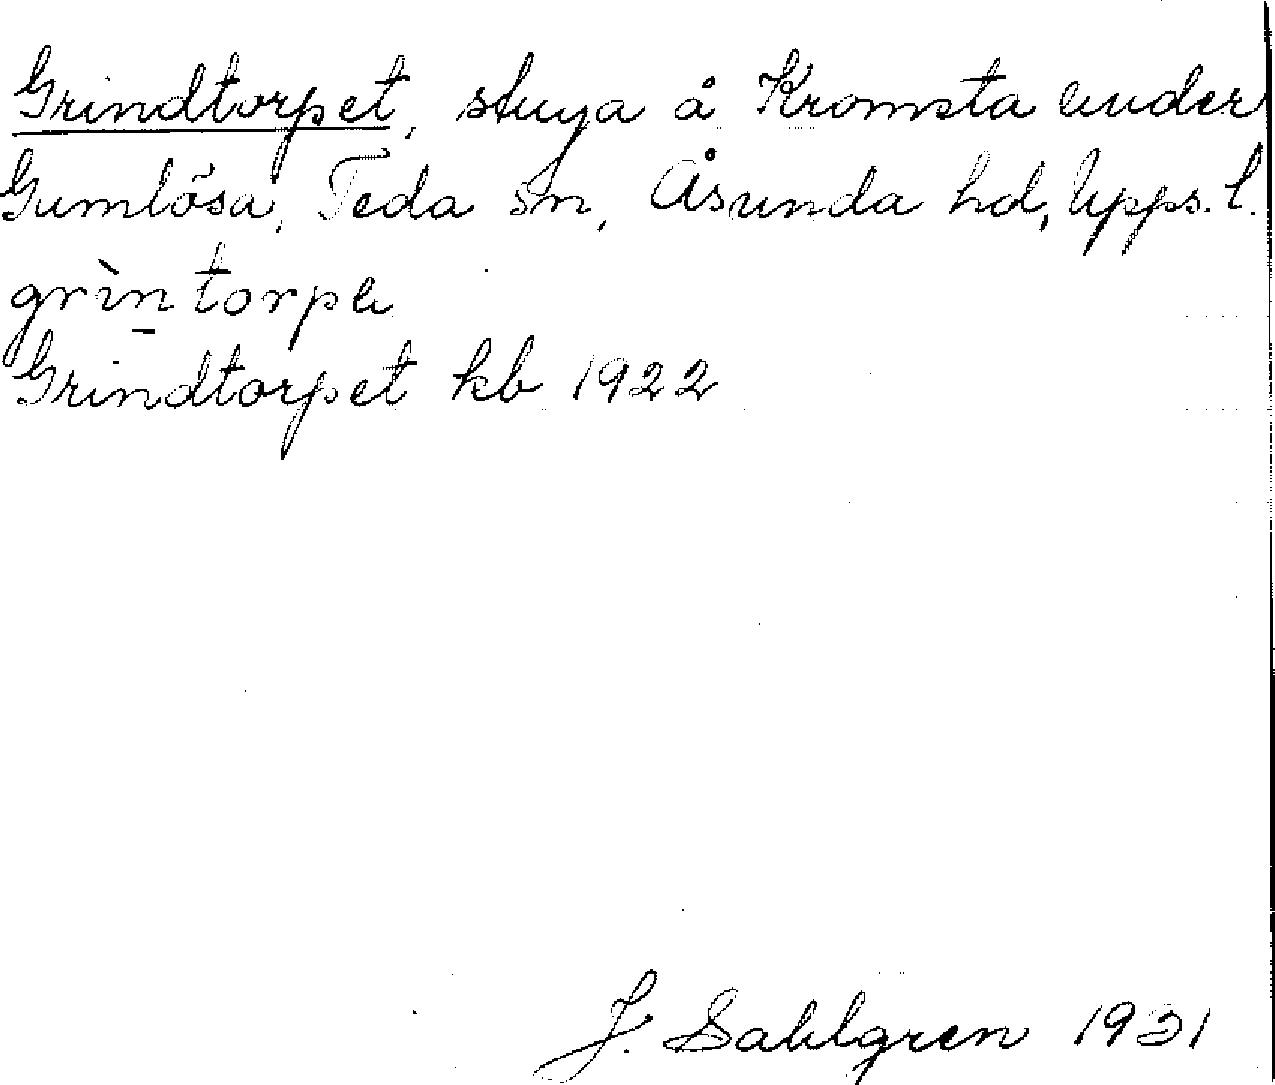 Grindtorpet, stuga å Kromsta under
Gumlösa, Teda sn, Åsunda hd, Upps. l.
grìn torpe
Grindtorpet kb 1922
J. Sahlgren 1931